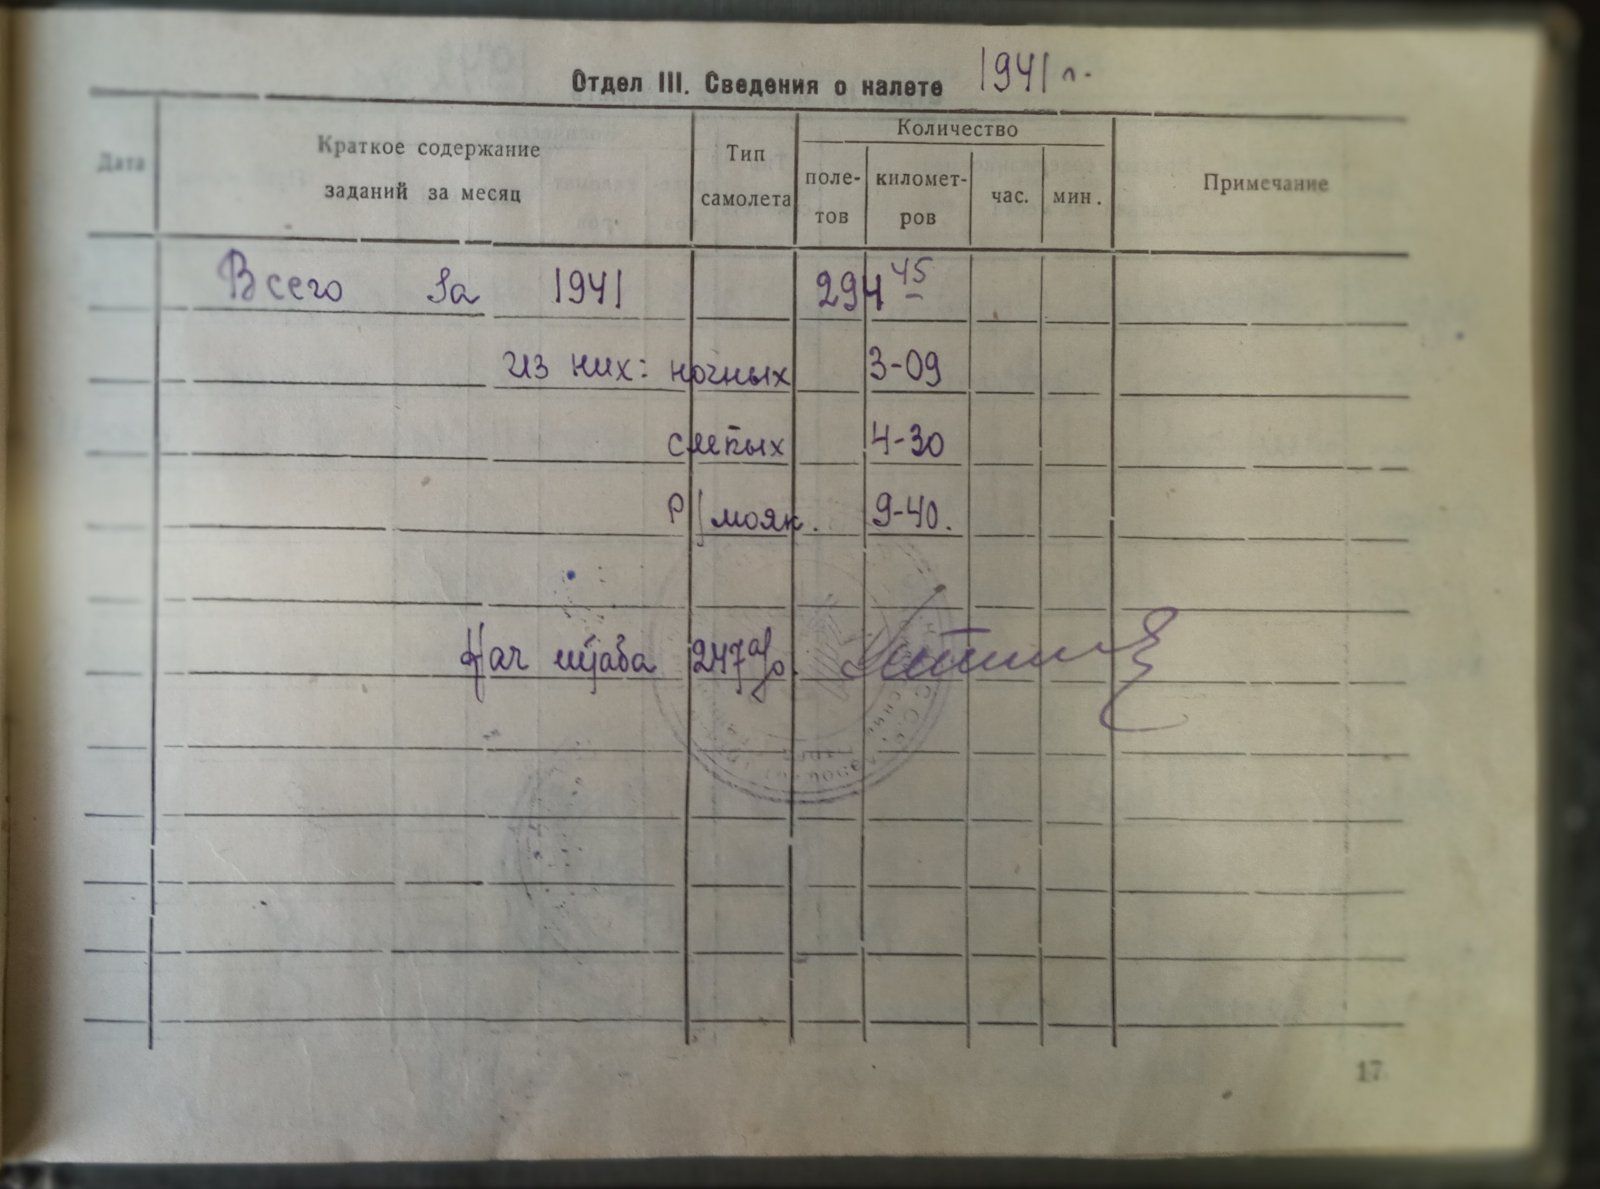 Отдел III. Сведения о налете 1941 г.
Дата
Краткое содержание
заданий за месяц
Тип
самолета
Количество
поле-
тов
километ-
ров
час.
мин.
Примечание
Всего за 1941 294 45
из них: ночных 3-09
слепых 4-30
Р/мояк. 9-40.
Нач штаба 247
17